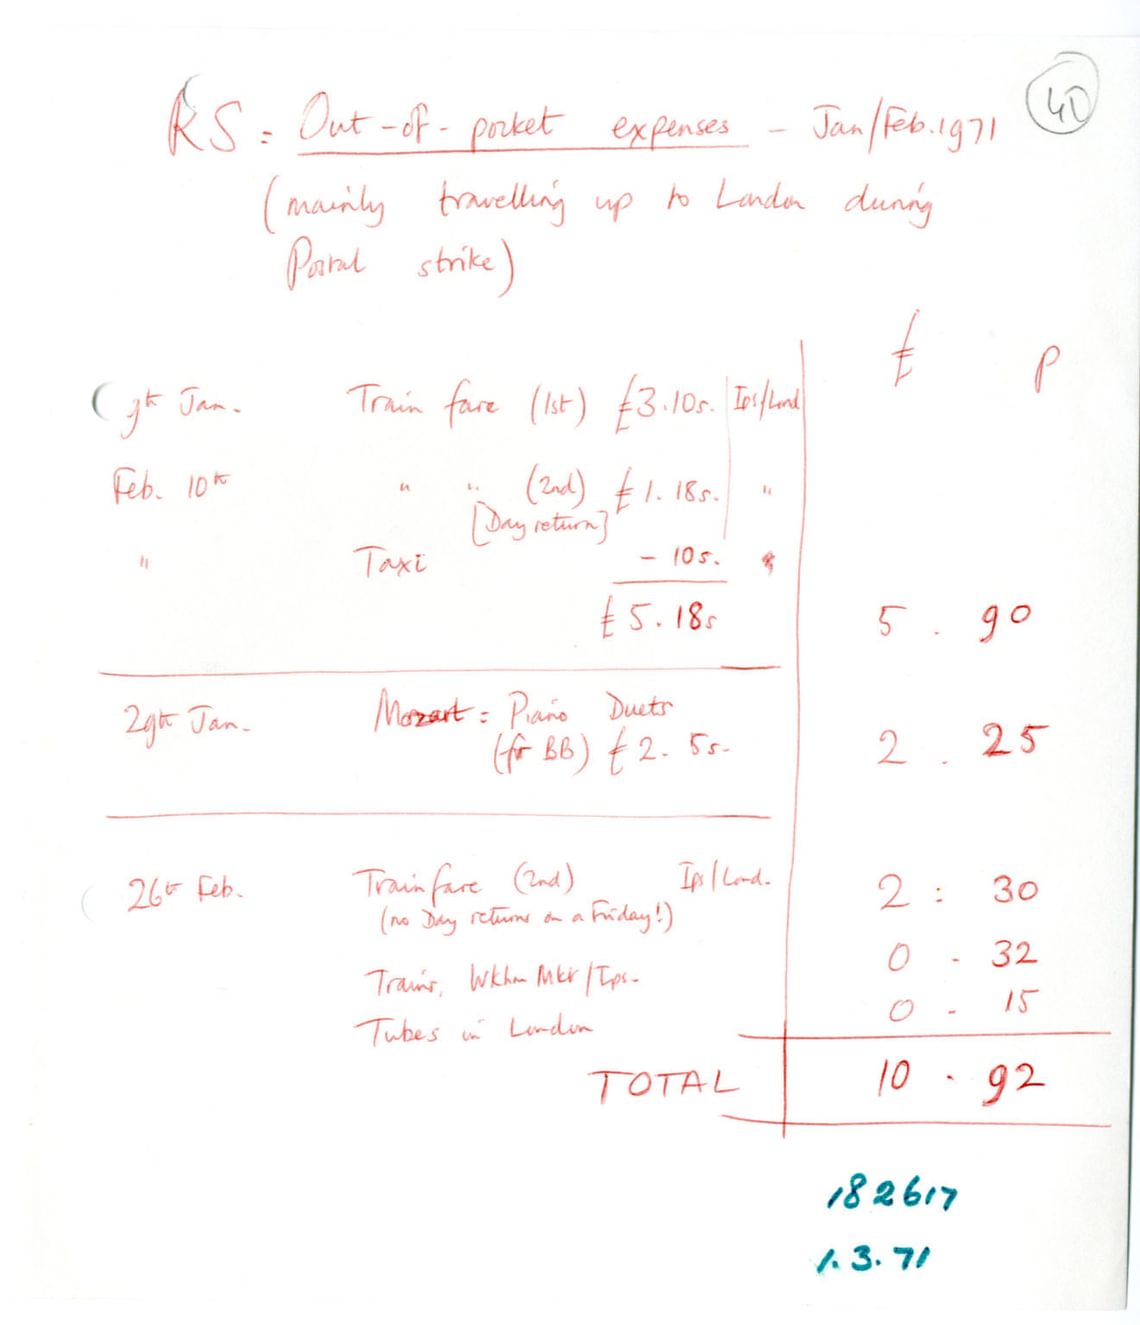 40
RS = Out-of-pocket expenses – Jan/Feb. 1971
(mainly travelling up to London during
Postal strike)
£ p
9th Jan. Train fare (1st) £3.10s. Ips/Lond
Feb. 10th " " (2nd) £1.18s. "
[Day return]
" Taxi – 10s.
£5.18s 5 . 90
29th Jan. Mozart = Piano Duets
(for BB) £2. 5s. 2 . 25
26th Feb. Train fare (2nd) Ips/Lond. 2 : 30
(no Day returns on a Friday!)
Trains, Wkhm Mkt/Ips. 0 . 32
Tubes in London 0 . 15
TOTAL 10 . 92
182617
1.3.71